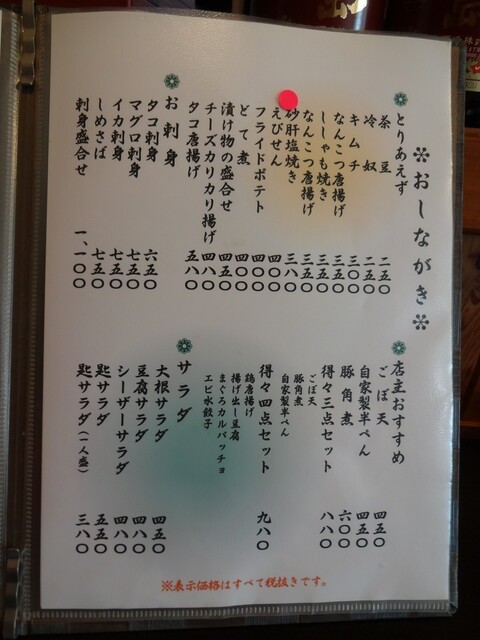 ※おしながき※
とりあえず
茶豆 二五〇
冷奴 二五〇
キムチ 三〇〇
なんこつ唐揚げ 三五〇
ししゃも焼き 三五〇
なんこつ唐揚げ 三五〇
砂肝塩焼き 三八〇
えびせん 四〇〇
フライドポテト 四〇〇
どて煮 四〇〇
漬け物の盛合せ 四五〇
チーズカリカリ揚げ 四八〇
タコ唐揚げ 五八〇
お刺身
タコ刺身 六五〇
マグロ刺身 七五〇
イカ刺身 七五〇
しめさば 七五〇
刺身盛合せ 一、一〇〇
店主おすすめ
ごぼ天 四五〇
自家製半ぺん 四五〇
豚角煮 六〇〇
得々三点セット 八八〇
ごぼ天
豚角煮
自家製半ぺん
得々四点セット 九八〇
鶏唐揚げ
揚げ出し豆腐
まぐろカルパッチョ
エビ水餃子
サラダ
大根サラダ 四五〇
豆腐サラダ 四八〇
シーザーサラダ 四八〇
匙サラダ 五五〇
匙サラダ(一人盛) 三八〇
※表示価格はすべて税抜きです。